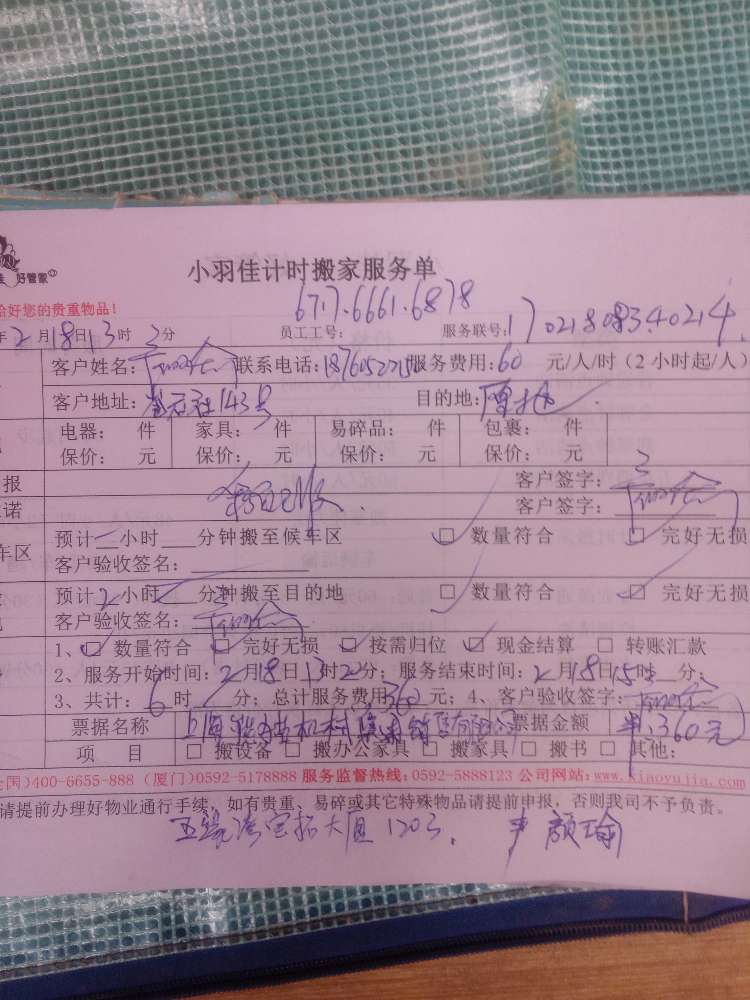 好管家
小羽佳计时搬家服务单
恰好您的贵重物品!
员工工号: 6717.6661.6878 服务联号: 17021808340214
年2月18日13时 分
客户姓名: 联系电话: 服务费用:60 元/人/时(2小时起/人)
客户地址: 143号 目的地:原地
电器: 件 家具: 件 易碎品: 件 包裹: 件
保价: 元 保价: 元 保价: 元 保价: 元
报 客户签字:
诺 客户签字:
车区 预计 小时 分钟搬至候车区 □ 数量符合 □ 完好无损
客户验收签名:
预计2小时 分钟搬至目的地 □ 数量符合 □ 完好无损
客户验收签名:
1、□ 数量符合 □ 完好无损 □ 按需归位 □ 现金结算 □ 转账汇款
2、服务开始时间:2月18日13时 分;服务结束时间:2月18日15时 分;
3、共计:6时 分;总计服务费用360元;4、客户验收签字:
票据名称 上海 机械 销售有限公司 票据金额 360元
项 目 □ 搬设备 □ 搬办公家具 □ 搬家具 □ 搬书 □ 其他:
全国)400-6655-888 (厦门)0592-5178888 服务监督热线:0592-5888123 公司网站:www.xiaoyujia.com
请提前办理好物业通行手续,如有贵重、易碎或其它特殊物品请提前申报,否则我司不予负责。
大厦1203. 颜瑜